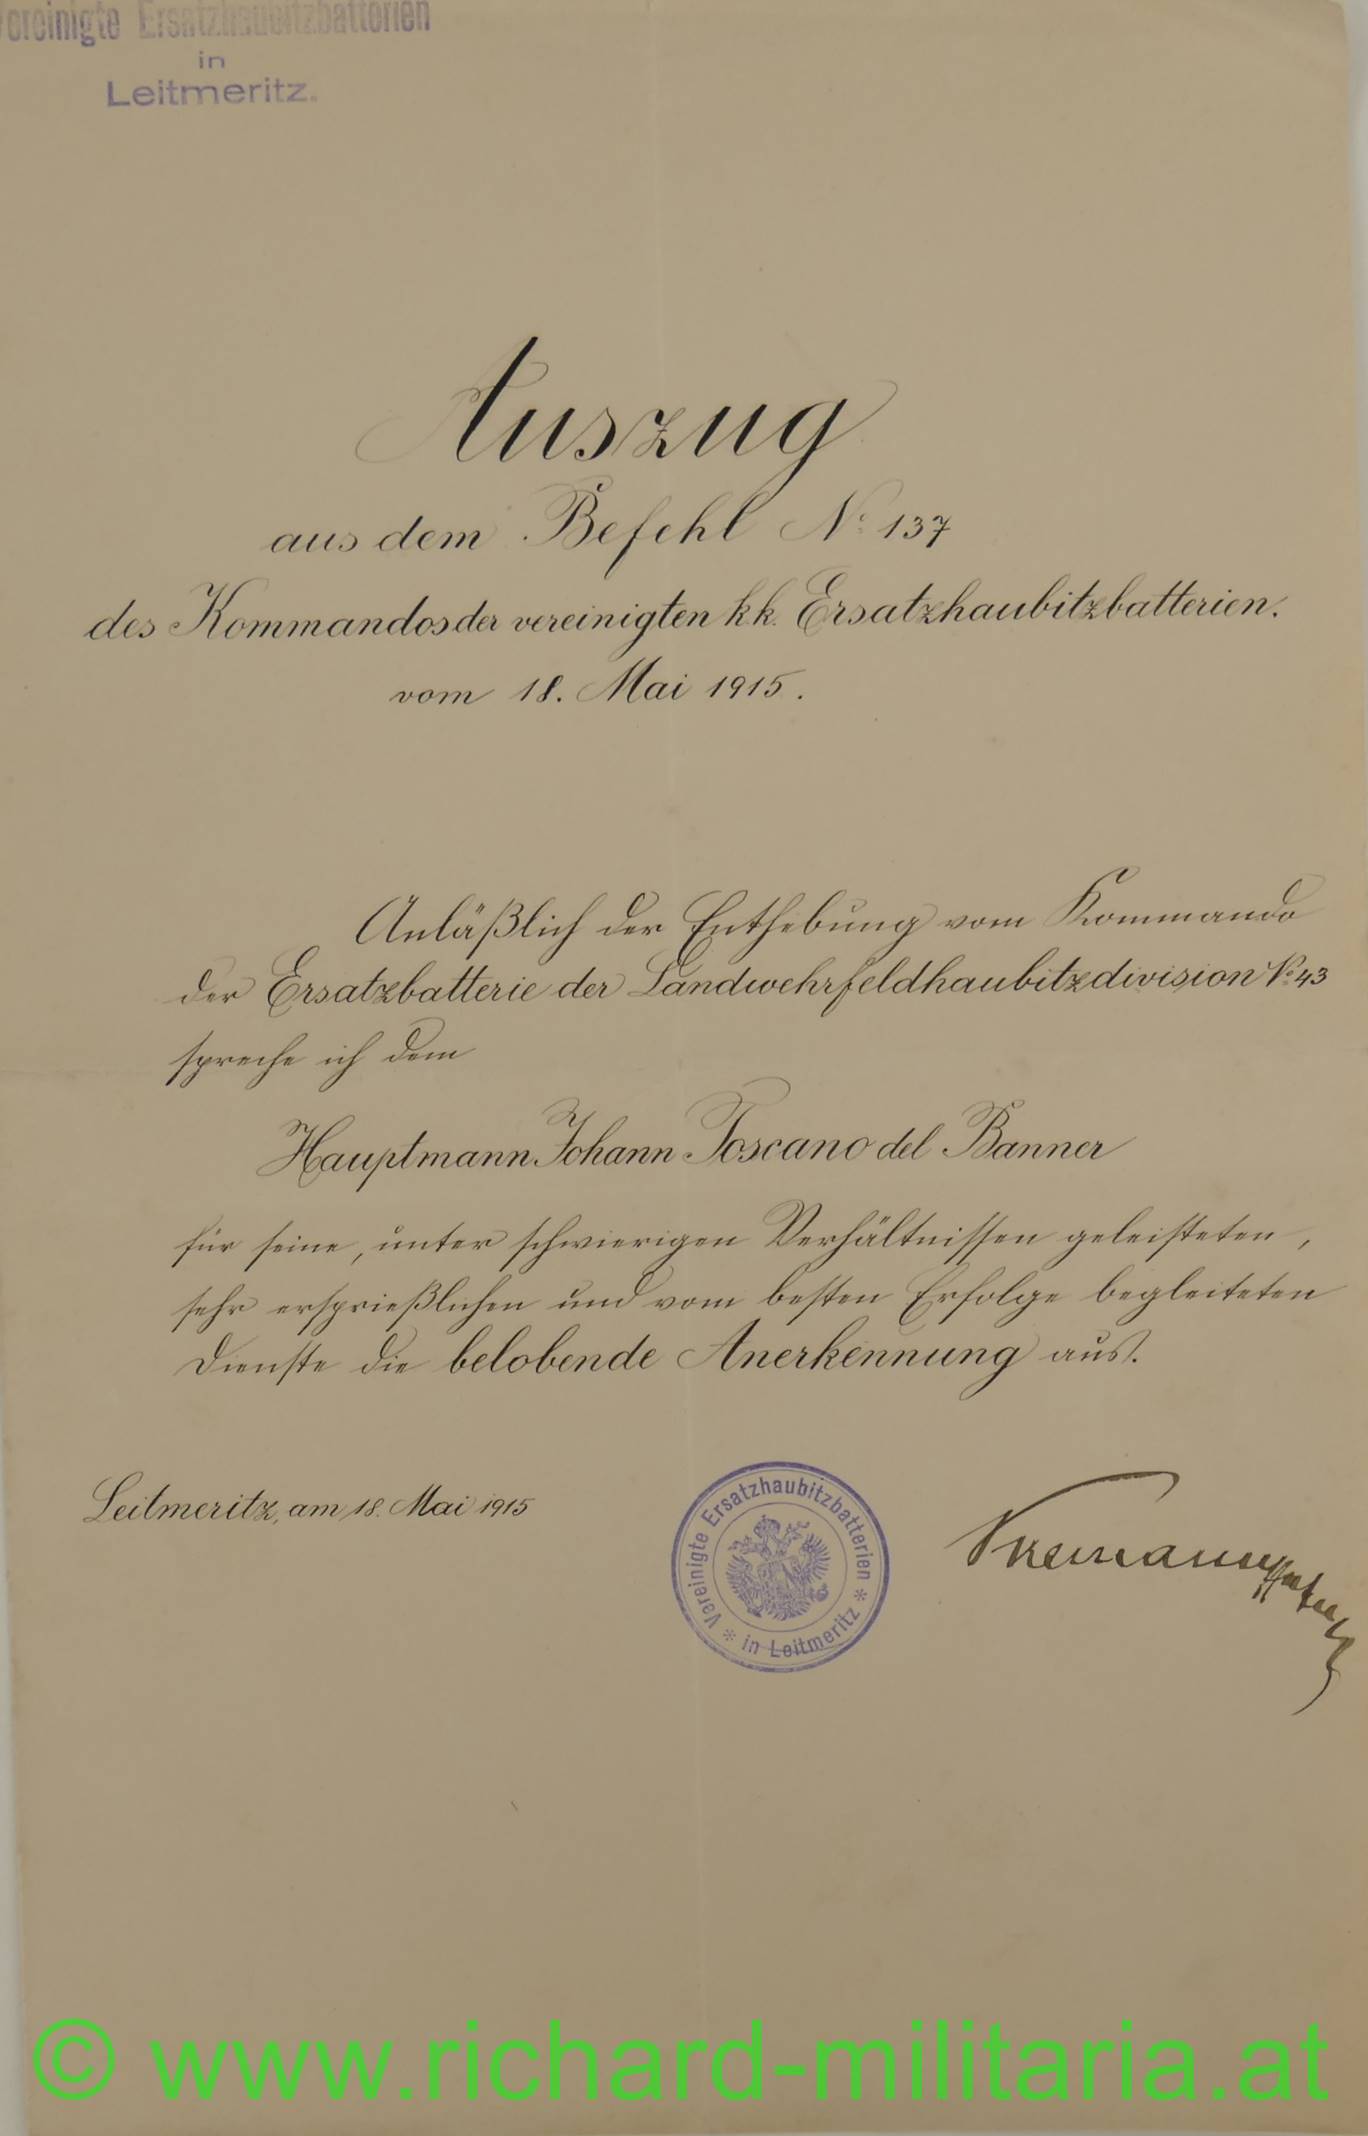 Vereinigte Ersatzhaubitzbatterien
in
Leitmeritz.
Auszug
aus dem Befehl No 137
des Kommandos der vereinigten k.k. Ersatzhaubitzbatterien.
vom 18. Mai 1915.
Anläßlich der Enthebung vom Kommando
der Ersatzbatterie der Landwehrfeldhaubitzdivision No 43
spreche ich dem
Hauptmann Johann Toscano del Banner
für seine, unter schwierigen Verhältnissen geleisteten,
sehr ersprießlichen und vom besten Erfolge begleiteten
Dienste die belobende Anerkennung aus.
Leitmeritz, am 18. Mai 1915
Vereinigte Ersatzhaubitzbatterien * in Leitmeritz *
© www.richard-militaria.at